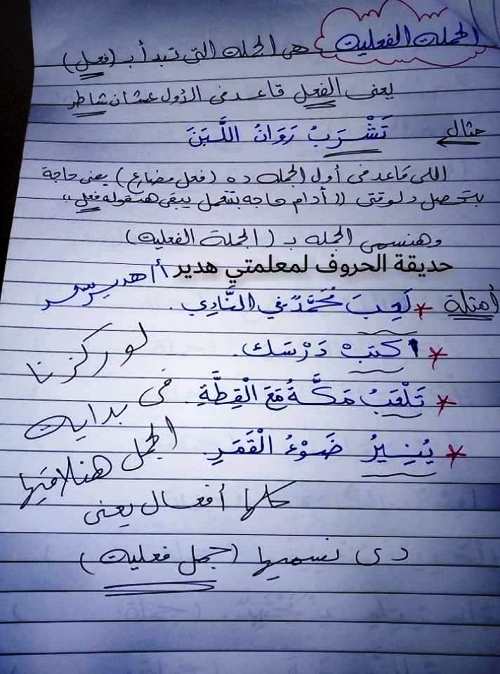 الجملة الفعلية هى الجملة التى تبدأ بـ (فعل)
يعنى الفعل قاعد فى الأول عشان شاطر
مثال تَشْرَبُ رَوَانُ اللَّبَنَ
اللى قاعد فى أول الجملة ده (فعل مضارع) يعنى حاجة
بتحصل دلوقتى (( أدام حاجه بتتعمل يبقى هنقوله فعل ))
وهنسمى الجمله بـ (الجملة الفعلية)
حديقة الحروف لمعلمتي هدير
أ/هدير سعد
أمثلة * لَعِبَ مُحَمَّدٌ في النَّادِي.
* اكتب دَرْسَك.
* تَلْعَبُ مَكَّةُ مَعَ الْقِطَّةِ.
* يُنِيرُ ضَوْءُ الْقَمَرِ.
لو ركزنا
فى بداية
الجمل هنلاقيها
كلها أفعال يعنى
دى نسميها (جمل فعلية)